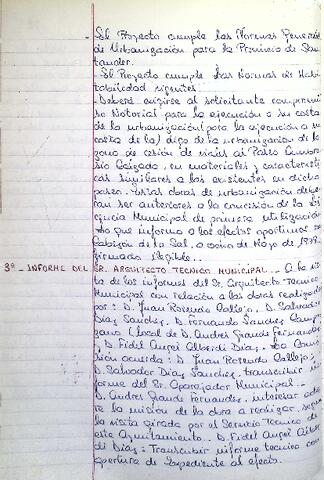 - El Proyecto cumple las Normas Generales
de Urbanización para la Provincia de San-
tander.
- El Proyecto cumple las Normas de Habi-
tabilidad vigentes.
- Deberá exigirse al solicitante compromi-
so Notarial para la ejecución a su costa
de la urbanización para la ejecución a su
costa de la) digo de la urbanización de la
zona de cesión de viales al Paseo
Calzada, en materiales y característi-
cas similares a los existentes en dicho
paseo. Estas obras de urbanización debe-
rán ser anteriores a la concesión de la Li-
cencia Municipal de primera utilización
Lo que informo a los efectos oportunos en
Cabezón de la Sal, a de Mayo de
firmado ilegible.
3º - INFORME DEL SR. ARQUITECTO TECNICO MUNICIPAL.- A la vis-
ta de los informes del Sr. Arquitecto Técnico
Municipal con relación a las obras realizadas
por: D. Juan Rosendo Callejo, D. Salvador
Díaz Sanchez, D. Fernando Sanchez Camp-
zano (local de D. Andres Grande Fernandez
y D. Fidel Angel Alberdi Díaz, la Comi-
sión acuerda: D. Juan Rosendo Callejo;
D. Salvador Díaz Sanchez, transcribir in-
forme del Sr. Aparejador Municipal.-
D. Andres Grande Fernandez, interesar
la misión de la obra a realizar, según
la visita girada por el Servicio Técnico de
este Ayuntamiento. D. Fidel Angel Alber-
di Díaz: Transcribir informe técnico con
apertura de Expediente al efecto.